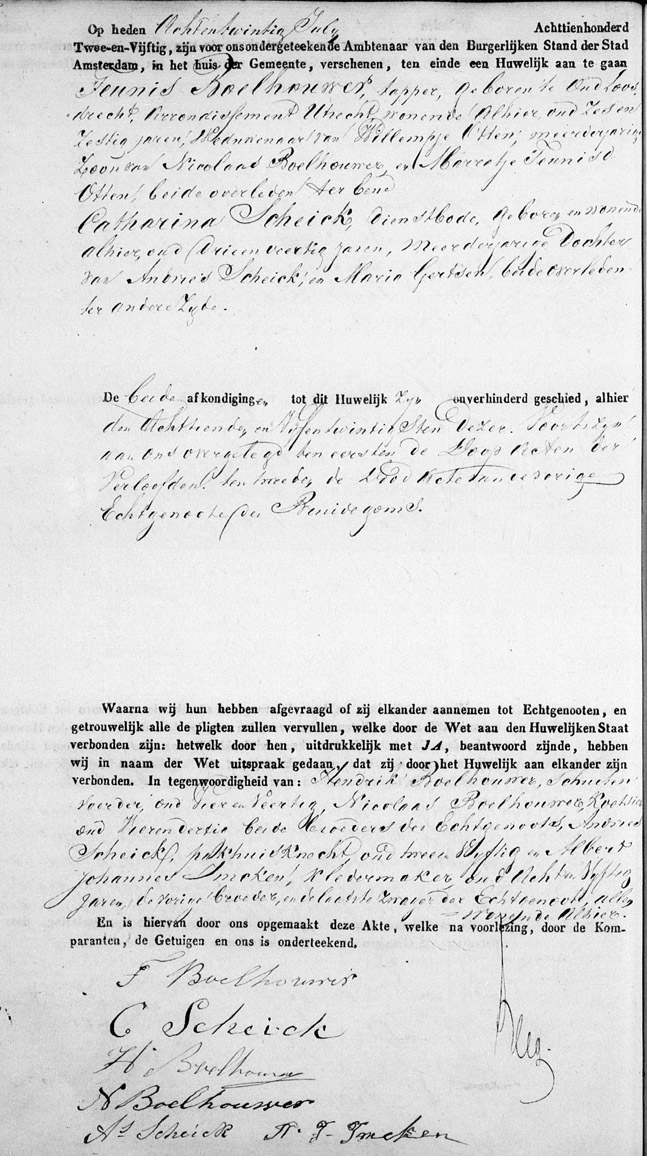 Op heden Achtentwintig July Achttienhonderd
Twee-en-Vijftig, zijn voor ons ondergeteekende Ambtenaar van den Burgerlijken Stand der Stad
Amsterdam, in het huis der Gemeente, verschenen, ten einde een Huwelijk aan te gaan
Teunis Boelhouwer, tapper, geboren te Oud Loos,
drecht, Arrondissement Utrecht, wonende Alhier, oud Zes en
Zestig jaren, Weduwenaar van Willempje Otten, meerderjarige
Zoon van Nicolaas Boelhouwer, en Marretje Teunisd
Otten, beide overleden ter eene
Catharina Scheick, Dienstbode, geboren en wonende
alhier, oud Drie en veertig jaren, meerderjarige Dochter
van Andries Scheick, en Maria Gertsen, beide overleden
ter andere Zyde.
De beide afkondigingen tot dit Huwelijk Zyn onverhinderd geschied, alhier
den Achttiende, en Vyfentwintigsten dezer. Voorts zyn
aan ons overgelegd ten eersten de Doop Acten der
Verloofden, ten tweede, de Dood Acte van vorige
Echtgenoote des Bruidegoms.
Waarna wij hun hebben afgevraagd of zij elkander aannemen tot Echtgenooten, en
getrouwelijk alle de pligten zullen vervullen, welke door de Wet aan den Huwelijken Staat
verbonden zijn: hetwelk door hen, uitdrukkelijk met JA, beantwoord zijnde, hebben
wij in naam der Wet uitspraak gedaan, dat zij door het Huwelijk aan elkander zijn
verbonden. In tegenwoordigheid van: Hendrik Boelhouwer, Schuiten
voerder, oud Vier en Veertig, Nicolaas Boelhouwer, Koetsier
oud Vier en dertig beide Broeders des Echtgenoots, Andries
Scheick, pakhuisknecht, oud twee en Vyftig en Albert
Johannes Imcken, kledermaker, oud Acht en Vyftig
Jaren, de vorige broeder, en de laatste Zwager der Echtgenoot, allen
wonende Alhier.
En is hiervan door ons opgemaakt deze Akte, welke na voorlezing, door de Kom-
paranten, de Getuigen en ons is onderteekend.
T Boelhouwer
C Scheick
H Boelhouwer
N Boelhouwer
As Scheick A. J. Imcken